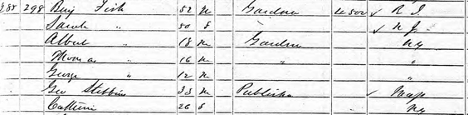 285 298 Benj Fish 52 M Gardner 4500 ✓ R I
Sarah " 50 F ✓ N J
Albert " 18 M Gardner NY
Thomas " 16 M " "
George " 12 M "
Geo Stebbins 33 M Publisher ✓ Mass
Catherine 26 F NY